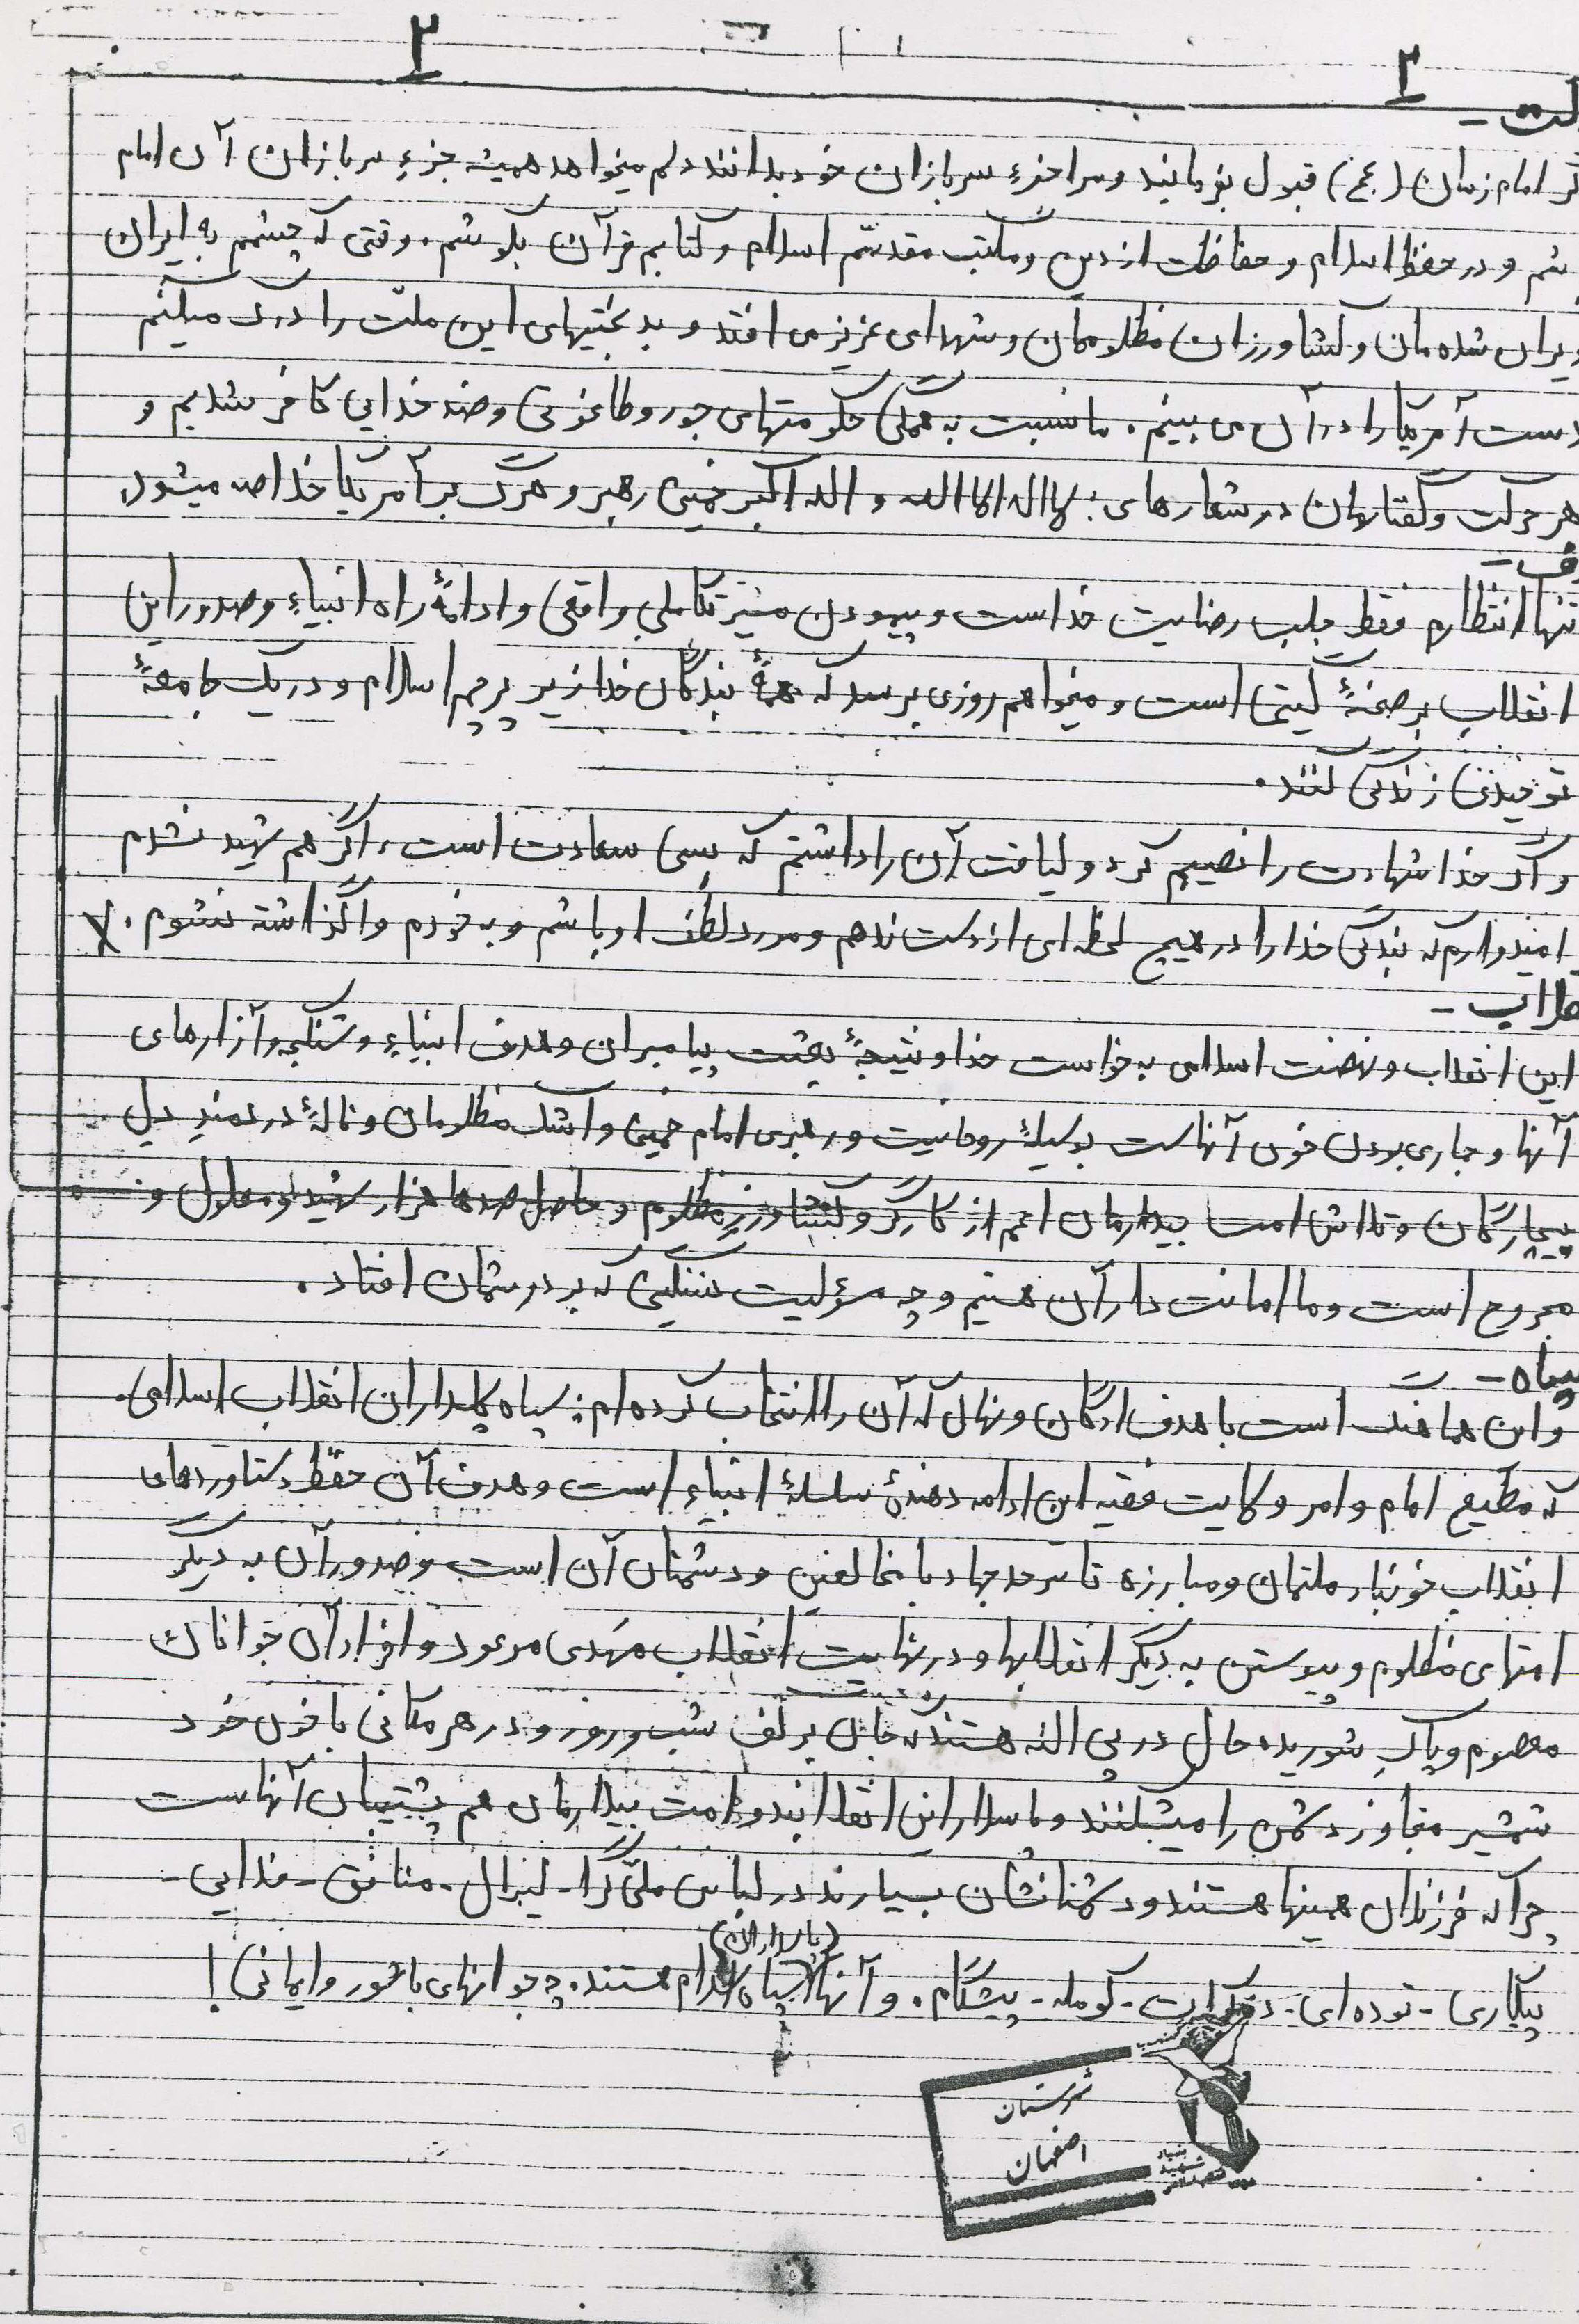 ۲ ۲
لت -
گر امام زمان (عج) قبول بفرمایند و مرا جزءِ سربازان خود بدانند دلم میخواهد همیشه جزءِ سربازان آن امام
شم و در حفظ اسلام و حفاظت از دین و مکتب مقدسّم اسلام و کتابم قرآن بکوشم. وقتی که چشمم به ایران
ویران شده مان و کشاورزان مظلوممان و شهدای عزیز می افتد و بدبختیهای این ملّت را درک میکنم
دست آمریکا را در آن می بینم. ما نسبت به همگی حکومتهای جور و طاغوتی و ضد خدایی کافر شدیم و
هر حرکت و گفتارمان در شعارهای: لااله الا الله و الله اکبر خمینی رهبر و مرگ بر آمریکا خلاصه میشود
ف -
تنها انتظارم فقط جلب رضایت خداست و پیمودن مسیر تکاملی واقعی و ادامهٔ راه انبیاءِ و صدور این
انقلاب بر صحنهٔ گیتی است و میخواهم روزی برسد که همهٔ بندگان خدا زیر پرچم اسلام و در یک جامعهٔ
توحیدی زندگی کنند.
و اگر خدا شهادت را نصیبم کرد و لیاقت آن را داشتم که بسی سعادت است، اگر هم شهید نشدم
امیدوارم که بندگی خدا را در هیچ لحظه ای از دست ندهم و مورد لطف او باشم و به خودم واگذاشته نشوم.
لاب -
این انقلاب و نهضت اسلامی به خواست خدا و نتیجهٔ بعثت پیامبران و هدف انبیاءِ و شکنجه و آزارهای
آنها و جاری بودن خون آنهاست بوسیلهٔ روحانیت و رهبری امام خمینی و اشک مظلومان و نالهٔ دردمندِ دل
بیچارگان و تلاش امت بیدارمان اعم از کارگر و کشاورز مظلوم و حاصل صدها هزار شهید و معلول و
مجروح است و ما امانت دار آن هستیم و چه مسؤلیت سنگینی که بر دوشمان افتاد.
سپاه -
و این هماهنگ است با هدف ارگان و نهالی که آن را انتخاب کرده ام: سپاه پاسداران انقلاب اسلامی.
که مطیع امام و امر ولایت فقیه این ادامه دهندهٔ سلسلهٔ انبیاءِ است و هدف آن حفظ دستاوردهای
انقلاب خونبار ملتمان و مبارزه تا سرحد جهاد با مخالفین و دشمنان آن است و صدور آن به دیگر
امتهای مظلوم و پیوستن به دیگر انقلابها و در نهایت انقلاب مهدی موعود و افراد آن جوانان
معصوم و پاکِ شوریده حال در پی الله هستند که جان بر کف شب و روز و در هر مکانی با خون خود
شمشیر متجاوز دشمن را میشکنند و پاسدار این انقلابند و امت بیدارمان هم پشتیبان آنهاست
چرا که فرزندان همینها هستند و دشمنانشان بسیارند در لباس ملّی گرا - لیبرال - منافق - فدایی -
(پاسداران)
پیکاری - توده ای - دمکرات - کومله - پیشگام. و آنها سپاه کدام هستند، چه جوانهای با شور و ایمانی!
شهرستان
اصفهان
بنیاد
شهید